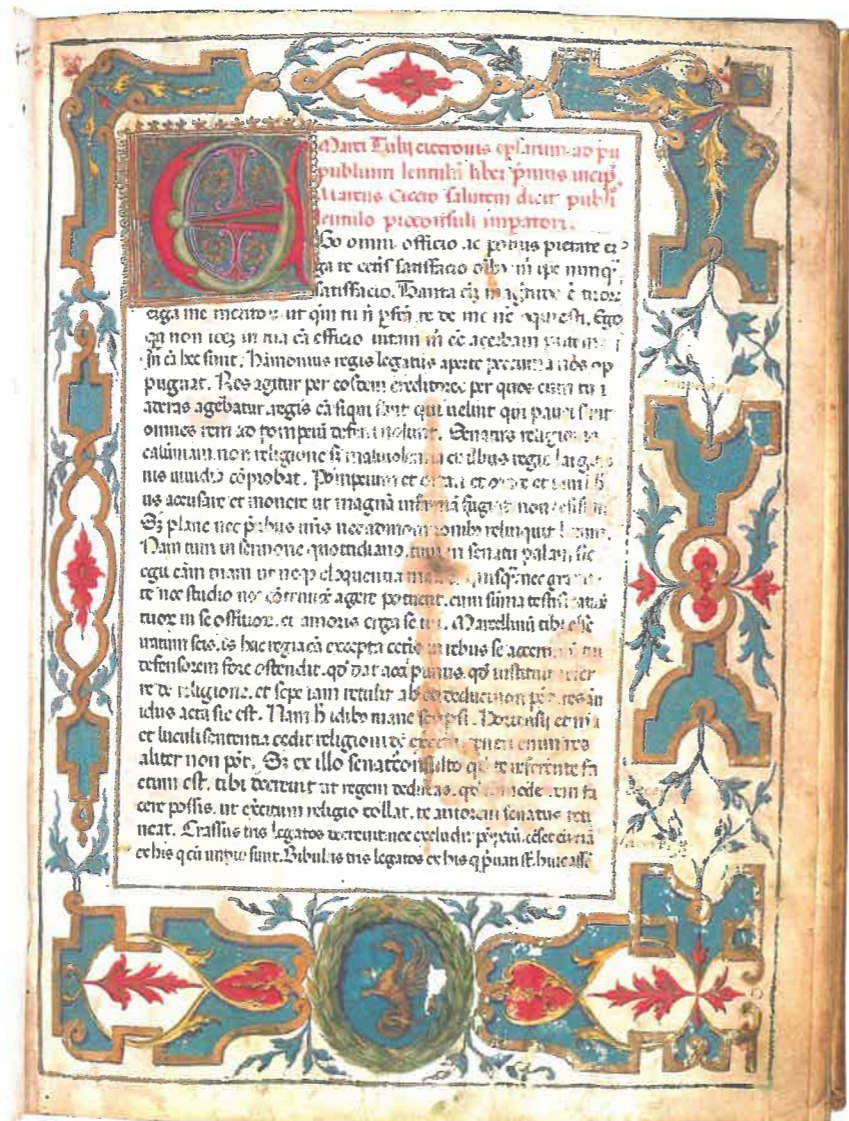 Marci Tulij ciceronis ep̄larum ad pu
publium lentulū liber p̄imus incip̄.
Marcus Cicero salutem dicit publi
lentulo proconsuli impatori.
Ego omni officio ac potius pietate er
ga te cetis satisfacio oībꝫ m̄ ipe nunqꝫ
satisfacio. Tanta eīꝫ magitudo ē tuoꝝ
erga me meritoꝝ ut qm̄ tu n̄ re de me
qꝫ non idez in tua cā efficio uitam m̄ eē acerbam
In cā hec sunt. Hāmonius regis legatus aperte pecunia nos op
pugnat. Res agitur per eosdem creditores per quos cum tu
aderas agebatur. regis cā siqui sunt qui uelint qui pauci sunt
omnes rem ad pompeiū deferri uolunt. Senatus religionis
calūniam non religione sꝫ maliuolentia et illius regie
inuidia cōprobat. Pompeium et et orare et
us accusare et monere ut magnā infamiā fugiat non
Sꝫ plane nec p̄cibus nr̄is nec admonitionibꝫ relinquit
Nam cum in sermone quottidiano. tum in senatu palam sic
egit cām tuam ut neqꝫ eloquentia quisqꝫ nec
te nec studio nec cōtentiōe agere potuerit. cum sūma testificatiōe
tuoꝝ in se officioꝝ. et amoris erga se tui. Marcellinū tibi esse
iratum scis. is hac regia cā excepta ceteris in rebus se acerrimū tui
defensorem fore ostendit. qd̄ dat accipimus. qd̄ instituit
re de religione. et sepe iam retulit ab eo deduci non
idus acta sic est. Nam h̄ idibꝫ mane scripsi. Hortensij et mea
et luculi sententia cedit religioni de teneri enim res
aliter non pōt. Sꝫ ex illo senatꝯconsulto qd̄ te referente fa
ctum est. tibi decernit ut regem deducas. qd̄ comode fa
cere possis. ut exercitum religio tollat. te autorem senatus reti
neat. Crassus tris legatos decreuit. nec excludit pōpeiū. cēset
ex his qui cum imperio sunt. Bibulus tris legatos ex his q̄ p̄uati st̄. huic assē